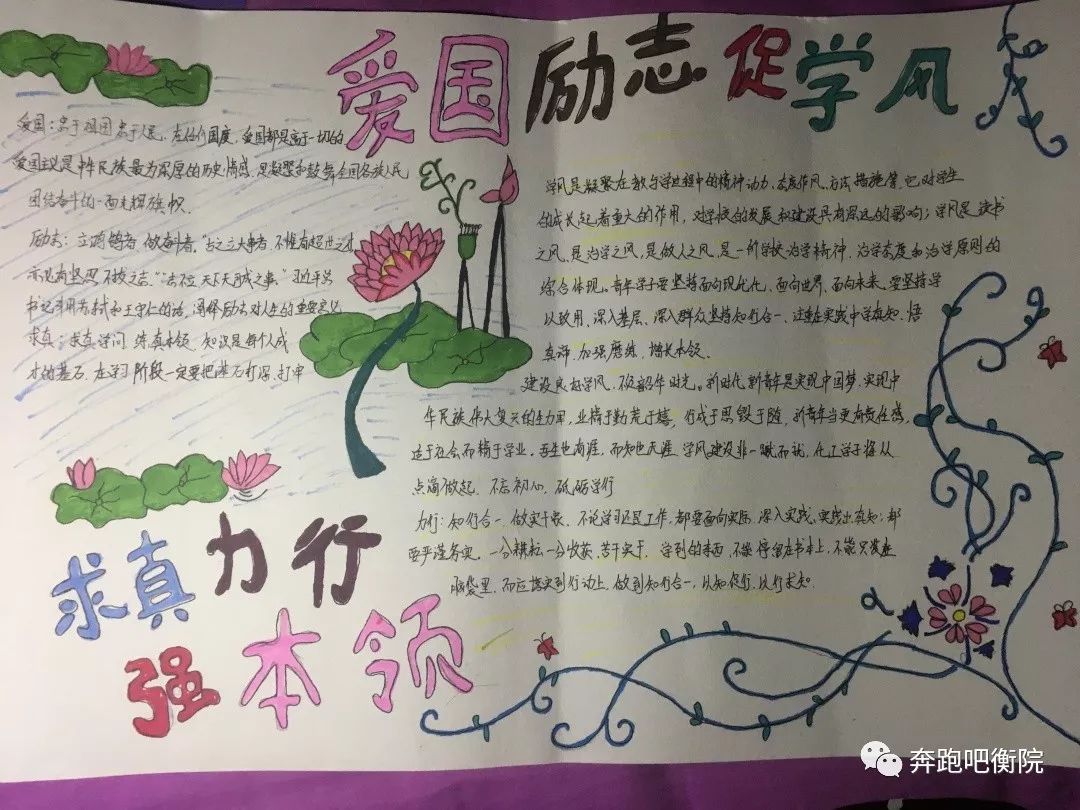 爱国励志促学风
爱国：忠于祖国忠于人民，在任何国度，爱国都是高于一切的
爱国主义是中华民族最为深厚的历史情感，是凝聚和鼓舞全国各族人民
团结奋斗的一面光辉旗帜.
励志：立鸿鹄志，做奋斗者，古之立大事者，不惟有超世之才
亦必有坚忍不拔之志."志不立，天下无可成之事."习近平总
书记引用苏轼和王守仁的话，阐释励志对人生的重要意义
求真：求真学问，练真本领，知识是每个人成
才的基石，在学习阶段一定要把基石打深、打牢
学风是凝聚在教与学过程中的精神动力、态度作风、方法措施等，它对学生
的成长起着重大的作用，对学校的发展和建设具有深远的影响；学风是读书
之风，是治学之风，是做人之风，是一所学校治学精神、治学态度和治学原则的
综合体现。青年学子要坚持面向现代化、面向世界、面向未来，要坚持学
以致用，深入基层、深入群众坚持知行合一，注重在实践中学真知、悟
真谛，加强磨练，增长本领。
建设良好学风，不负韶华时光。新时代新青年是实现中国梦，实现中
华民族伟大复兴的主力军，业精于勤荒于嬉，行成于思毁于随，新青年当更有责任感，
志于社会而精于学业。吾生也有涯，而知也无涯 学风建设非一蹴而就，化工学子将从
点滴做起，不忘初心，砥砺学行
力行：知行合一，做实干家，不论学习还是工作，都要面向实际，深入实践，实践出真知；都
要严谨务实，一分耕耘一分收获，苦干实干，学到的东西，不能停留在书本上，不能只装在
脑袋里，而应落实到行动上，做到知行合一，以知促行，以行求知.
求真力行
强本领
奔跑吧衡院